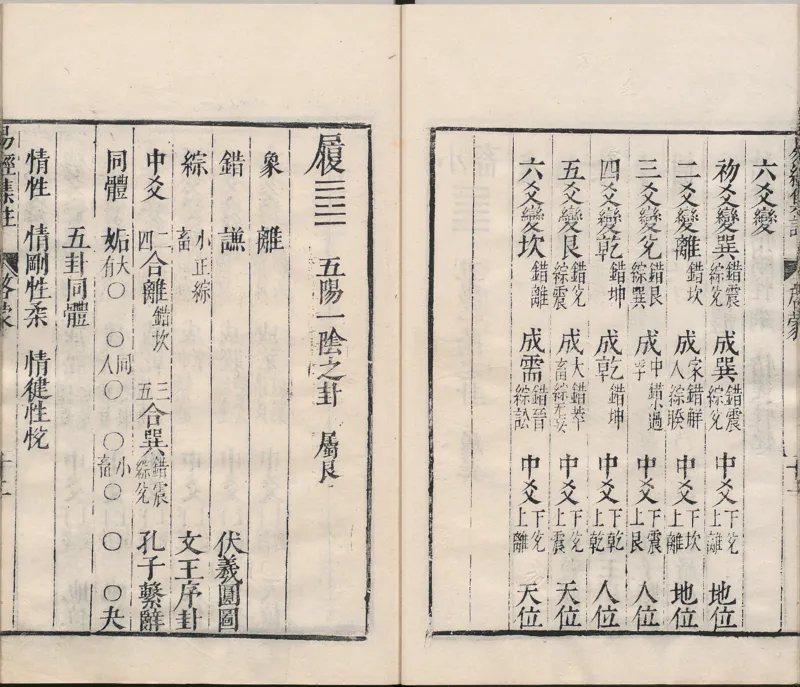 六爻變
初爻變巽 錯震 綜兌 成巽 錯震 綜兌 中爻 下兌 上離 地位
二爻變離 錯坎 成家人 錯解 綜睽 中爻 下坎 上離 地位
三爻變兌 錯艮 綜巽 成中孚 錯小過 中爻 下震 上艮 人位
四爻變乾 錯坤 成乾 錯坤 中爻 下乾 上乾 人位
五爻變艮 錯兌 綜震 成大畜 錯萃 綜无妄 中爻 下兌 上震 天位
六爻變坎 錯離 成需 錯晉 綜訟 中爻 下兌 上離 天位
履 五陽一陰之卦 屬艮
象 離
錯 謙 伏羲圓圖
綜 小畜 正綜 文王序卦
中爻 二四合離 錯坎 三五合巽 錯震 綜兌 孔子繫辭
同體 姤 大有○ ○ 同人○ ○ ○ 小畜○ ○ ○夬
五卦同體
情性 情剛性柔 情健性悅
易經集註
啓蒙
十二